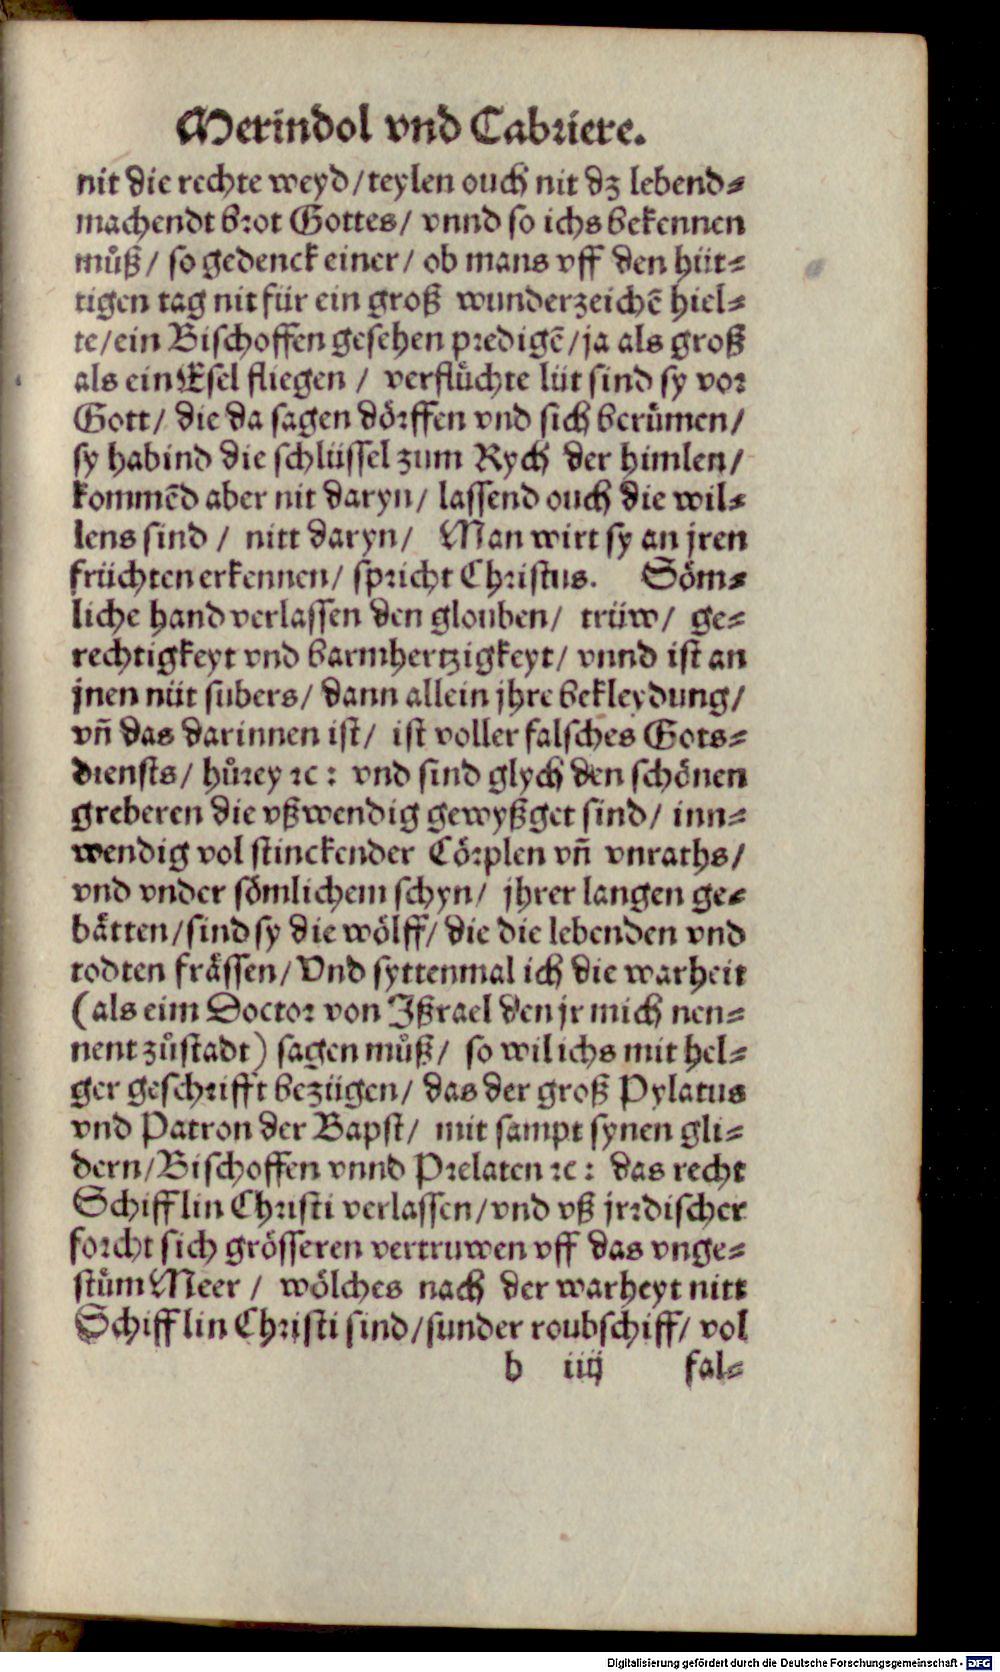 Merindol vnd Cabriere.
nit die rechte weyd/teylen ouch nit dz lebend⸗
machendt brot Gottes/ vnnd so ichs bekennen
můß/ so gedenck einer/ ob mans vff den hüt⸗
tigen tag nit für ein groß wunderzeichē hiel⸗
te/ein Bischoffen gesehen predigē/ja als groß
als ein Esel fliegen / verflůchte lüt sind sy vor
Gott/ die da sagen dörffen vnd sich berůmen/
sy habind die schlüssel zum Rych der himlen/
kommēd aber nit daryn/ lassend ouch die wil⸗
lens sind / nitt daryn/ Man wirt sy an jren
früchten erkennen/ spricht Christus. Söm⸗
liche hand verlassen den glouben/ trüw/ ge⸗
rechtigkeyt vnd barmhertzigkeyt/ vnnd ist an
jnen nüt subers/ dann allein jhre bekleydung/
vñ das darinnen ist/ ist voller falsches Gots⸗
diensts/ hůrey ꝛc: vnd sind glych den schönen
greberen die vßwendig gewyßget sind/ inn⸗
wendig vol stinckender Cörplen vñ vnraths/
vnd vnder sömlichem schyn/ jhrer langen ge⸗
bätten/sind sy die wölff/ die die lebenden vnd
todten frässen/ Vnd syttenmal ich die warheit
(als eim Doctor von Jßrael den jr mich nen⸗
nent zůstadt) sagen můß/ so wil ichs mit hel⸗
ger geschrifft bezügen/ das der groß Pylatus
vnd Patron der Bapst/ mit sampt synen gli⸗
dern/Bischoffen vnnd Prelaten ꝛc: das recht
Schifflin Christi verlassen/vnd vß jrrdischer
forcht sich grösseren vertruwen vff das vnge⸗
stům Meer / wölches nach der warheyt nitt
Schifflin Christi sind/sunder roubschiff/ vol
b iiij fal⸗
Digitalisierung gefördert durch die Deutsche Forschungsgemeinschaft - DFG